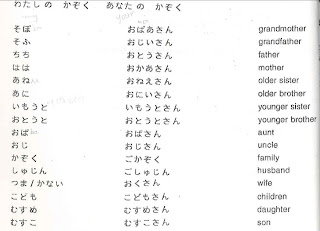 わたしの かぞく あなたの かぞく
そぼ おばあさん grandmother
そふ おじいさん grandfather
ちち おとうさん father
はは おかあさん mother
あね おねえさん older sister
あに おにいさん older brother
いもうと いもうとさん younger sister
おとうと おとうとさん younger brother
おば おばさん aunt
おじ おじさん uncle
かぞく ごかぞく family
しゅじん ごしゅじん husband
つま/かない おくさん wife
こども こどもさん children
むすめ むすめさん daughter
むすこ むすこさん son